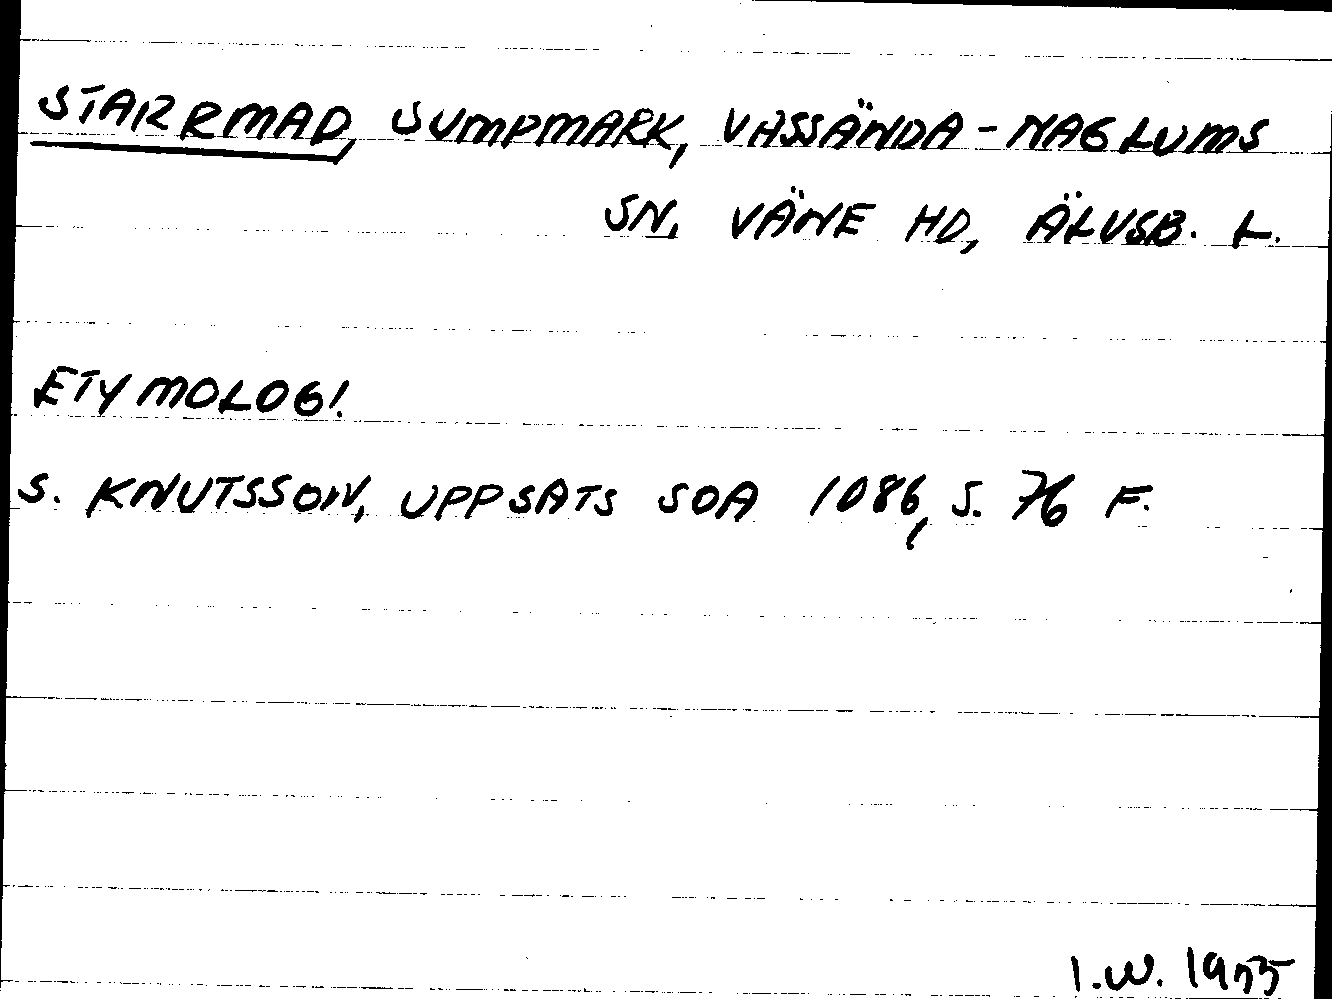 STARRMAD, SUMPMARK, VASSÄNDA-NAGLUMS
SN, VÄNE HD, ÄLVSB. L.
ETYMOLOGI.
S. KNUTSSON, UPPSATS SOA 1086, S. 76 F.
I.W.